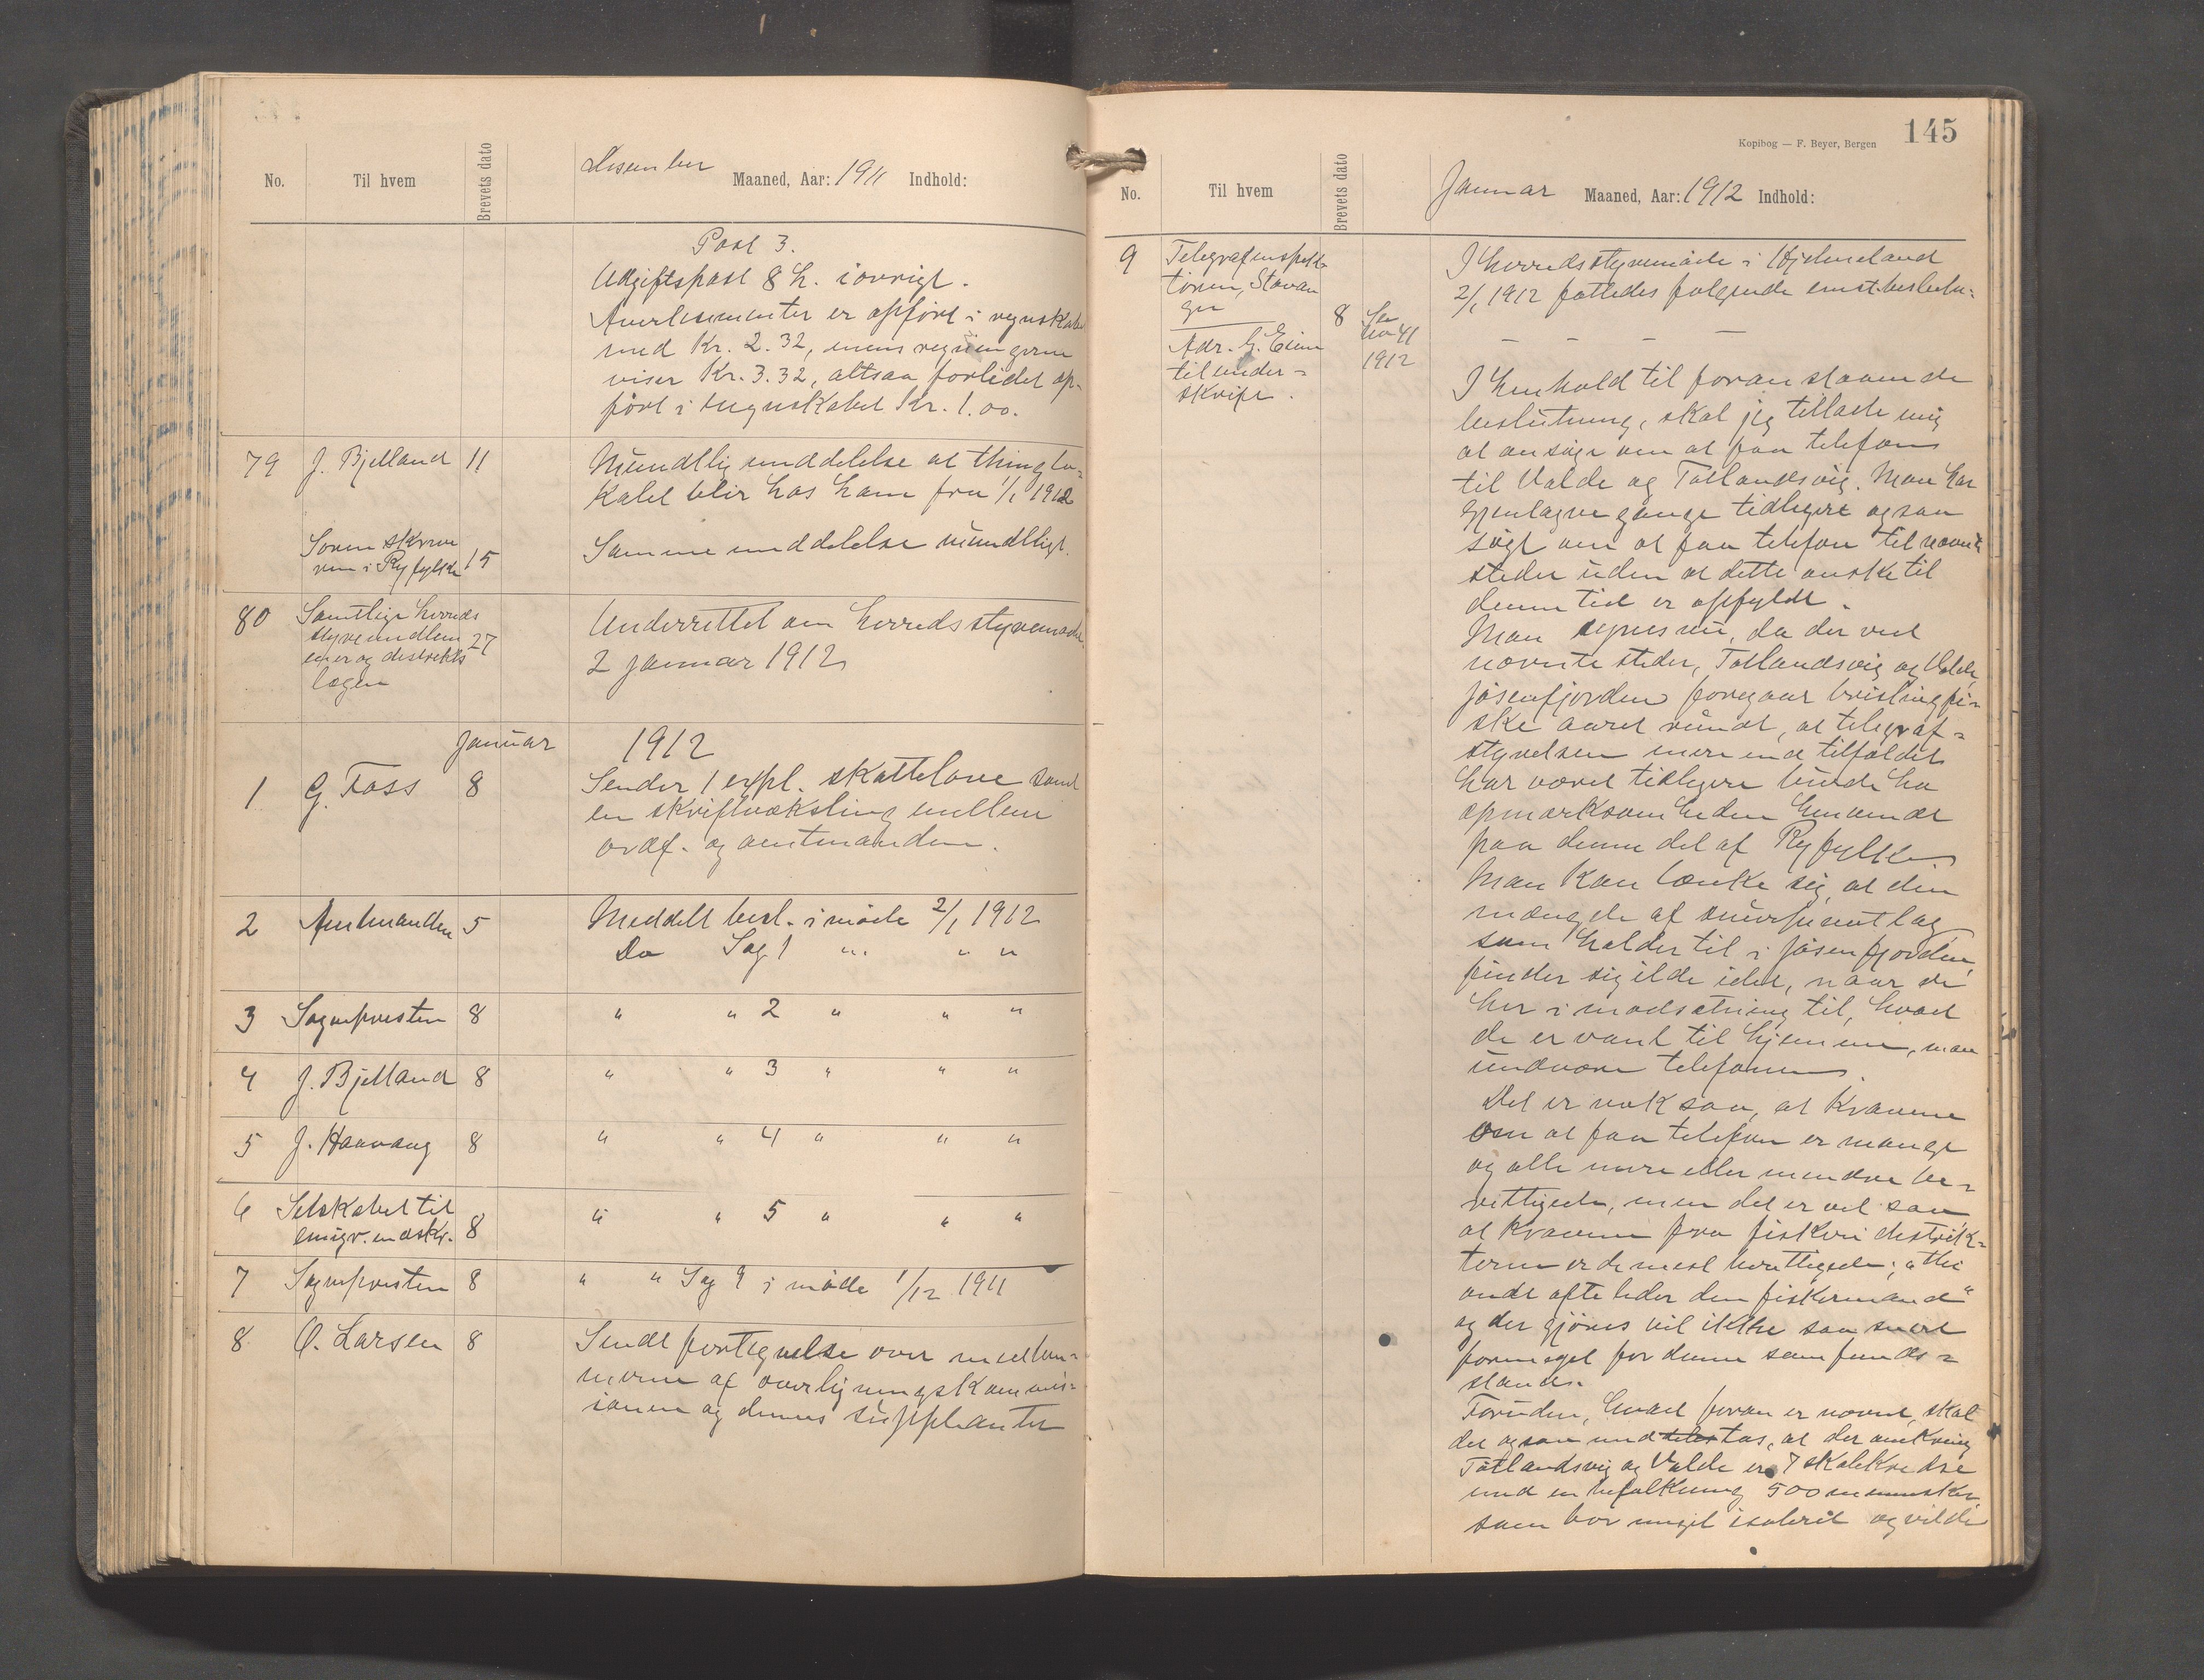 No. Til hvem Brevets dato Desember Maaned, Aar: 1911 Indhold:
Post 3.
Udgiftspost 8 h. iøvrigt.
Avertisementer er opført i regnskabet
med Kr. 2.32, mens regningerne
viser Kr. 3.32, altsaa forlidet op-
ført i regnskabet Kr. 1.00.
79 J. Bjelland 11 Mundtlig meddelelse at thinglo-
kalet blir hos ham fra 1/1 1912
Sorenskrive
ren i Ryfylke 15 Samme meddelelse mundtligt.
80 Samtlige herreds
styremedlem 27 Underrettet om herredsstyremøde
mer og distrikts 2 januar 1912
lægen
Januar 1912
1 G. Foss 8 Sender 1 expl. skattelove samt
en skriftveksling mellem
ordf. og amtmanden.
2 Amtmanden 5 Meddelt besl. i møde 2/1 1912
Do Sag 1 " " "
3 Sognepresten 8 " " 2 " " "
4 J. Bjelland 8 " " 3 " " "
5 J. Haavang 8 " " 4 " " "
6 Selskabet til
emigr. indskr. 8 " " 5 " " "
7 Sognepresten 8 " " Sag 9 i møde 1/12 1911
8 O. Larsen 8 Sendt fortegnelse over medlem-
merne af overligningskommis-
ionen og dennes supleanter
145
Kopibog — F. Beyer, Bergen
No. Til hvem Brevets dato Januar Maaned, Aar: 1912 Indhold:
9 Telegrafinspek
tøren, Stavan
ger
8 Se
No 41
1912
Adr. G. Eime
til under-
skrift.
I herredsstyremøde i Hjelmeland
2/1 1912 fattedes følgende enst. beslut-
— — — —
I henhold til foranstaaende
beslutning, skal jeg tillade mig
at ansøge om at faa telefon
til Valde og Tøtlandsvig. Man har
gjentagne gange tidligere ogsaa
søgt om at faa telefon til nævnte
steder uden at dette ønske til
denne tid er opfyldt.
Man synes nu, da der ved
nævnte steder, Tøtlandsvig og Valde,
Jøsenfjorden foregaar brislingfi-
ske aaret rundt, at telegraf-
styrelsen mere end tilfældet
har været tidligere burde ha
opmerksomheden henvendt
paa denne del af Ryfylke.
Man kan tænke sig, at den
mængde af snurpenotlag
som holder til i Jøsenfjorden,
finder sig ilde idet, naar de
her i modsætning til, hvad
de er vant til hjemme, maa
undvære telefonen.
Det er nok saa, at kravene
om at faa telefon er mange
og alle mere eller mindre be-
rettigede, men det er vel saa
at kravene fra fiskeridistrik-
terne er de mest berettigede; "thi
ondt ofte lider den fiskermand"
og der gjøres vel ikke saa svært
formeget for denne samfunds-
stand.
Foruden, hvad foran er nævnt, skal
det ogsaa medtas, at der omkring
Tøtlandsvig og Valde er 7 skolekredse
med en befolkning 500 mennesker
som bor meget isolerit og vilde